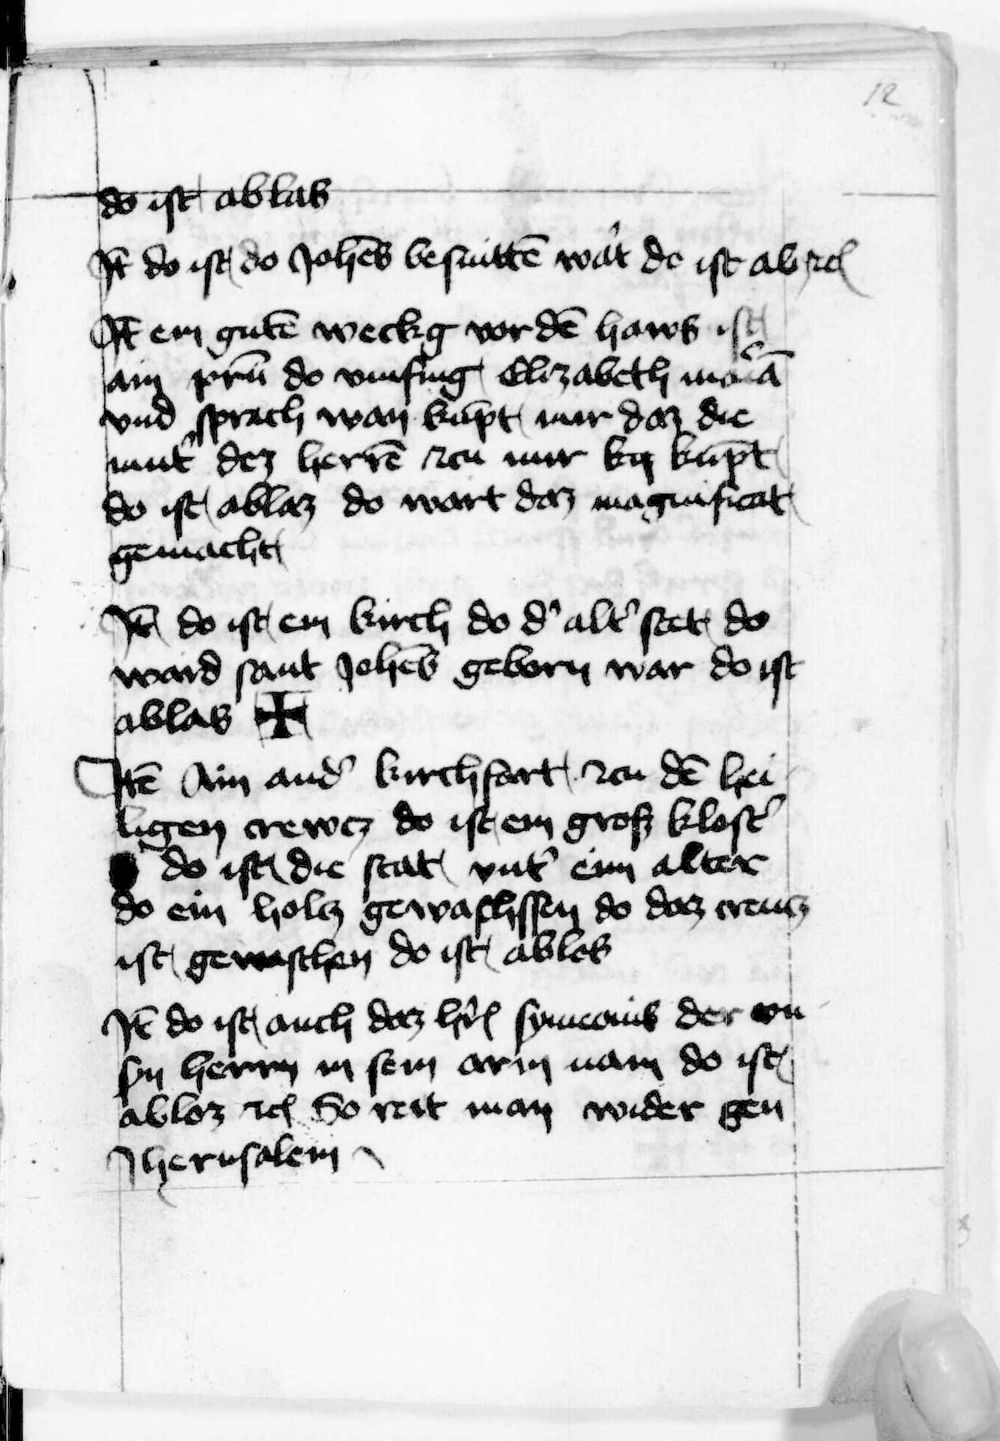 12
do ist ablas
Jt̄ do ist do Johēs besnittē wat̓ do ist ab ꝛc̄
Jt̄ ein gutē weckg vor dē haws ist
ain prū do vmfing Elizabeth mariā
vnd sprach wan kūpt mir daz die
mut̓ dez herrē zcu mir kūpt
do ist ablaz do wart daz magnificat
gemacht
Jt̄ do ist ein kirch do d̓ alt̓ stet do
ward sant Johēs geborn war do ist
ablas ✠
Jtē Ain and̓ kirchfart zcu dē hei
ligen crewcz do ist ein grosz klost̓
do ist die stat vnt̓ eim alter
do ein holcz gewachssen do daz creucz
ist gewachsen do ist ablos
Jt̄ do ist auch daz hūs symeonis der vn
sn herrn in sein arm nam do ist
abloz ꝛc̄ So reit man wider gen
Jherusalem